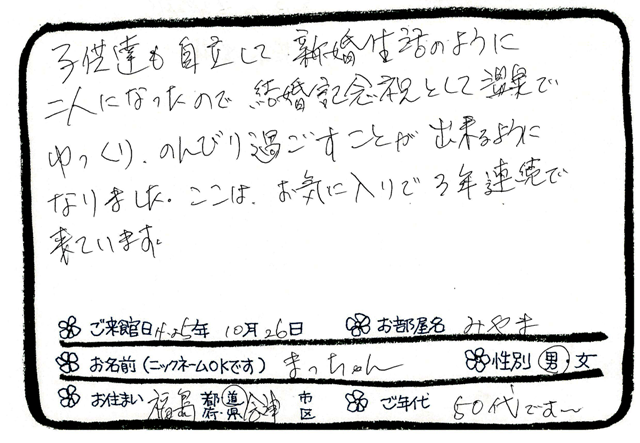 子供達も自立して 新婚生活のように
二人になったので 結婚記念祝として温泉で
ゆっくり、のんびり過ごすことが 出来るように
なりました。ここは、お気に入りで 3年連続で
来ています。
ご来館日 H.25年 10月26日 お部屋名 みやま
お名前(ニックネームOKです) まっちゃん 性別 男・女
お住まい 福島 都道府県 会津 市区 ご年代 50代です〜